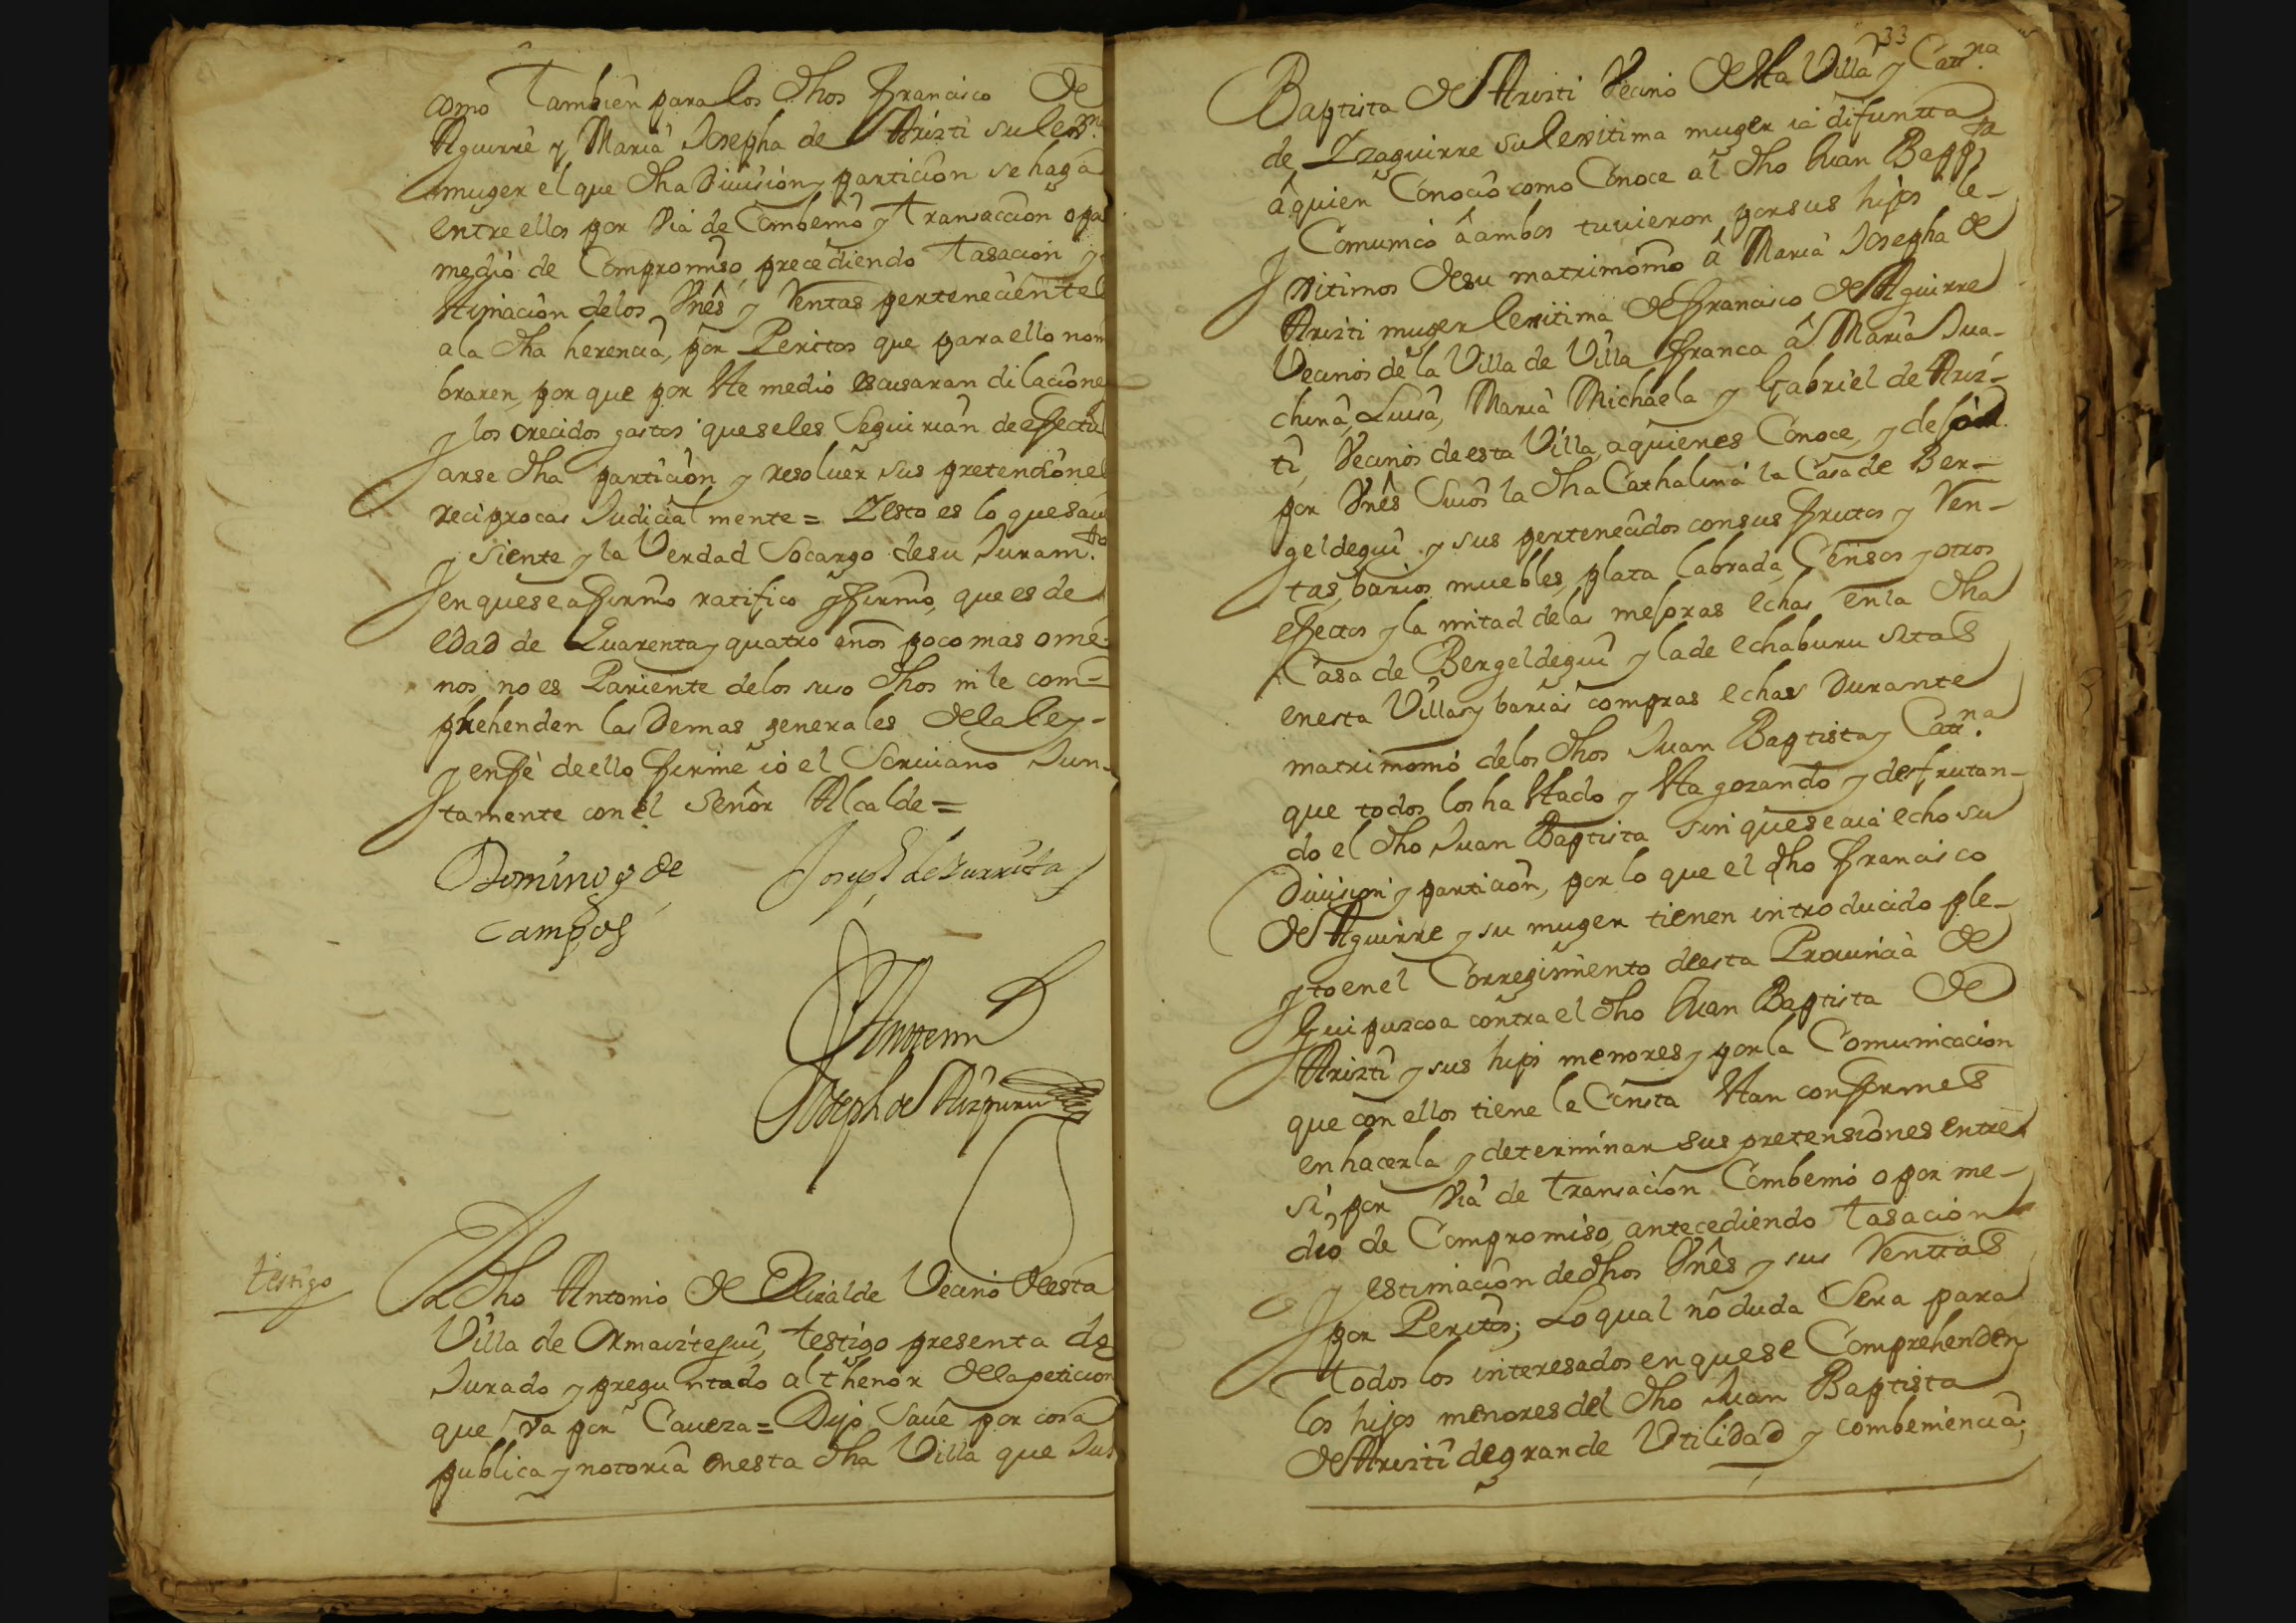 como Tambien para los dhos Francisco de
Aguirre y Maria Josepha de Aristi su lexma
muger el que dha Diuision y particion se haga
entre ellos por via de Combenio y Transaccion o por
medio de Compromiso, precediendo Tasacion y
estimacion delos Vnes y Rentas perteneciente
ala dha herencia, por Peritos que para ello nom
braren, por que por este medio escusaran dilacione
y los crecidos gastos que seles Seguirian de efectu
arse dha particion y resoluer sus pretencione
reciprocas Judicial mente = Y esto es lo que saue
y siente y la Verdad Socargo desu Juramto
en quese afirmo ratifico y firmo, que es de
edad de quarenta y quatro años poco mas o me
nos, no es Pariente delos suso dhos ni le com-
prehenden las Demas generales dela ley-
y enfe de ello firme io el Scriuano Jun-
tamente con el Señor Alcalde =
Domingo de
Campos
Joseph de Zurruta
Antemi
Joseph de Aizpuru
testigo
El dho Antonio de Elizalde Vecino desta
Villa de Ormaiztegui, testigo presenta do
Jurado y pregu ntado al thenor dela peticion
que va por Caueza = Dijo Saue por cosa
publica y notoria en esta dha Villa que Jua
33
Baptista de Aristi Vecino desta Villa y Catna
de Yzaguirre su lexitima muger ia difuntta
a quien Conocio como Conoce al dho Juan Bappta
y Comunico a ambos tuuieron por sus hijos le-
xitimos de su matrimonio a Maria Josepha de
Aristi muger lexitima de Francisco de Aguirre
Vecinos de la Villa de Villa franca a Maria Jua-
china, Luisa, Maria Michaela y Gabriel de Aris-
ti Vecinos de esta Villa, a quienes Conoce, y desó
por Vnes Suios la dha Cathalina la Casa de Ber-
geldegui y sus pertenecidos con sus frutos y Ren-
tas, barios muebles, plata labrada, Censos y otros
efectos y la mitad delas mejoras echas en la dha
Casa de Bergeldegui y la de echaburu sitas
en esta Villa y barias compras echas Durante
matrimonio delos dhos Juan Baptista y Catna
que todos los ha estado y esta gozando y desfrutan-
do el dho Juan Baptista sin que se aia echo su
Diuision y particion, por lo que el dho Francisco
de Aguirre y su muger tienen introducido ple-
yto en el Corregimiento de esta Prouincia de
Guipuzcoa contra el dho Juan Baptista de
Aristi y sus hijos menores y por la Comunicacion
que con ellos tiene le Consta estan conformes
en hacerla y determinar sus pretensiones entre
si, por via de transacion Combenio o por me-
dio de Compromiso, antecediendo tasacion
y estimacion de dhos Vnes y sus Renttas
por Peritos; Lo qual no duda Sera para
todos los interesados en que se Comprehenden
los hijos menores del dho Juan Baptista
de Aristi de grande Vtilidad y combeniencia;